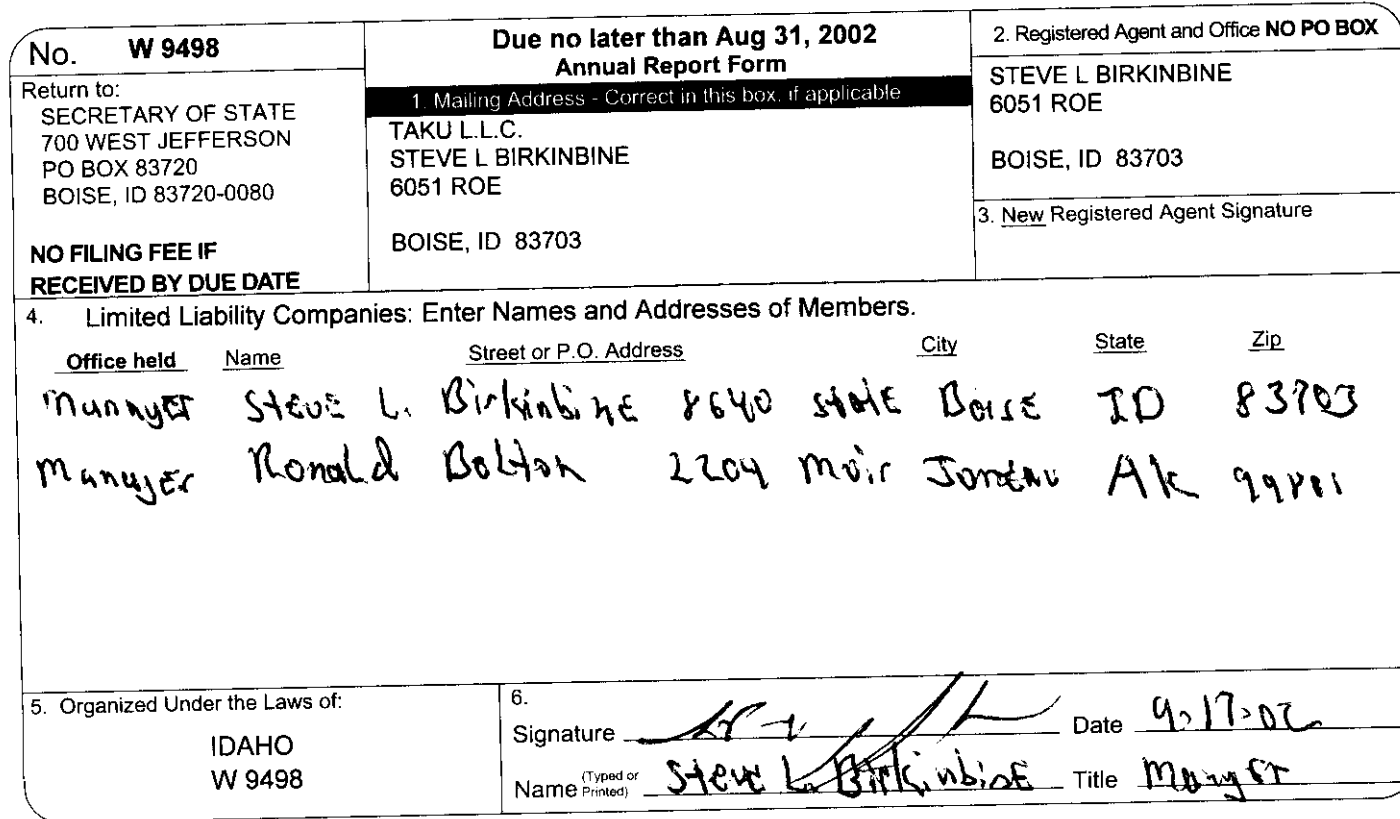 No. W 9498
Return to:
SECRETARY OF STATE
700 WEST JEFFERSON
PO BOX 83720
BOISE, ID 83720-0080
NO FILING FEE IF
RECEIVED BY DUE DATE
Due no later than Aug 31, 2002
Annual Report Form
1. Mailing Address - Correct in this box, if applicable
TAKU L.L.C.
STEVE L BIRKINBINE
6051 ROE
BOISE, ID 83703
2. Registered Agent and Office NO PO BOX
STEVE L BIRKINBINE
6051 ROE
BOISE, ID 83703
3. New Registered Agent Signature
4. Limited Liability Companies: Enter Names and Addresses of Members.
Office held Name Street or P.O. Address City State Zip
Manager Steve L. Birkinbine 8640 State Boise ID 83703
Manager Ronald Bolton 2204 Muir Juneau Ak 99801
5. Organized Under the Laws of:
IDAHO
W 9498
6.
Signature Date 9-17-02
Name (Typed or Printed) Steve L. Birkinbine Title Manager